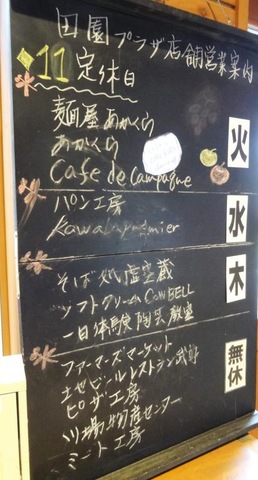 田園プラザ店舗営業案内
11定休日
麺屋あかくら
あかくら
Cafe de campagne
火
パン工房
Kawaba premier
水
そば処虚空蔵
ソフトクリームCOWBELL
一日体験陶芸教室
木
ファーマーズマーケット
地ビールレストラン武尊
ピザ工房
川場物産センター
ミート工房
無休